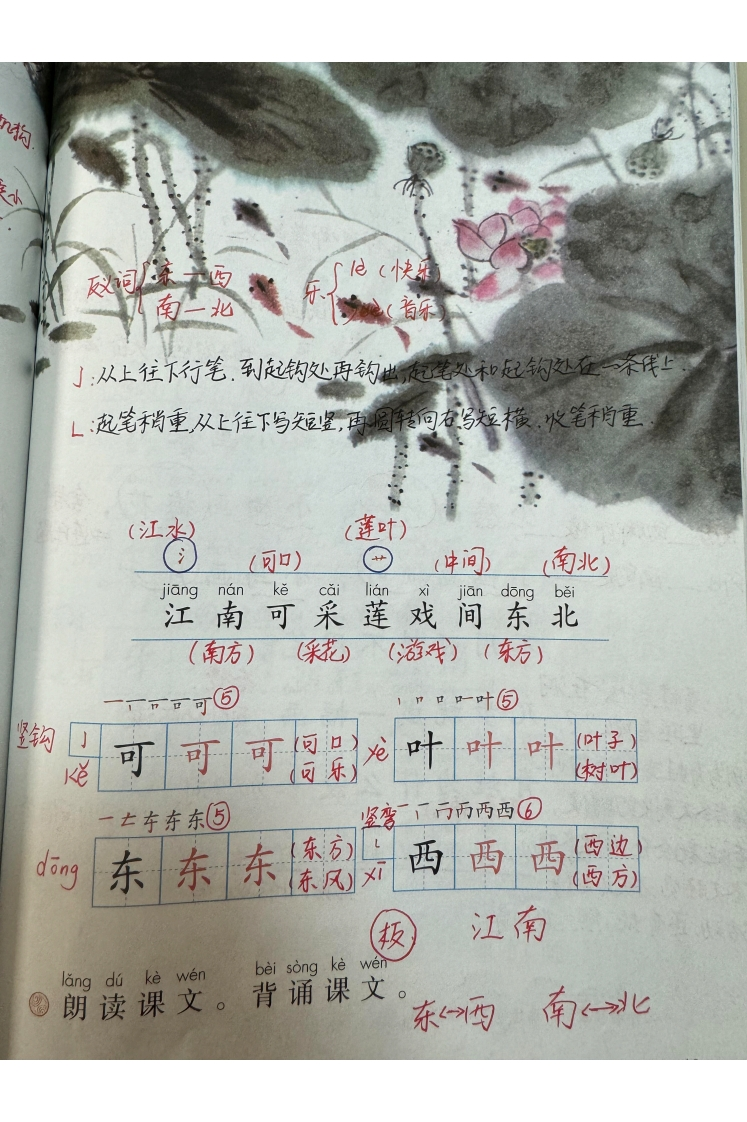 机钩.
反义词{东—西 乐{lè(快乐)
南—北 yuè(音乐)
亅:从上往下行笔.到起钩处再钩出,起笔处和起钩处在一条线上.
㇄:起笔稍重,从上往下写短竖,再圆转向右写短横.收笔稍重.
(江水) (莲叶)
氵 (可口) 艹 (中间) (南北)
jiāng nán kě cǎi lián xì jiān dōng běi
江 南 可 采 莲 戏 间 东 北
(南方) (采花) (游戏) (东方)
一丆可可可⑤ 丨口口叶叶⑤
竖钩 亅 可 可 可 (可口) yè 叶 叶 叶 (叶子)
kě (可乐) (树叶)
一𠂇东东东⑤ 竖弯 一丆丙丙西西⑥
dōng 东 东 东 (东方) 西 西 西 (西边)
(东风) xī (西方)
板 江南
lǎng dú kè wén bèi sòng kè wén
朗读课文。背诵课文。
东↔西 南↔北